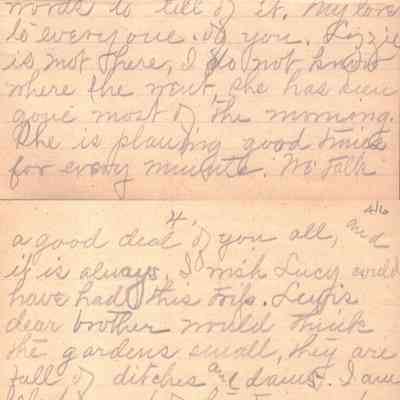 words to tell of it. My love
to everyone of you. Lizzie
is not there, I do not know
where she went, she has been
gone most of the morning.
She is planning good times
for every minute. We talk
4/6
4.
a good deal of you all, and
it is always, I wish Lucy could
have had this trip.
dear brother would think
the gardens small, they are
full of ditches and dams. I am